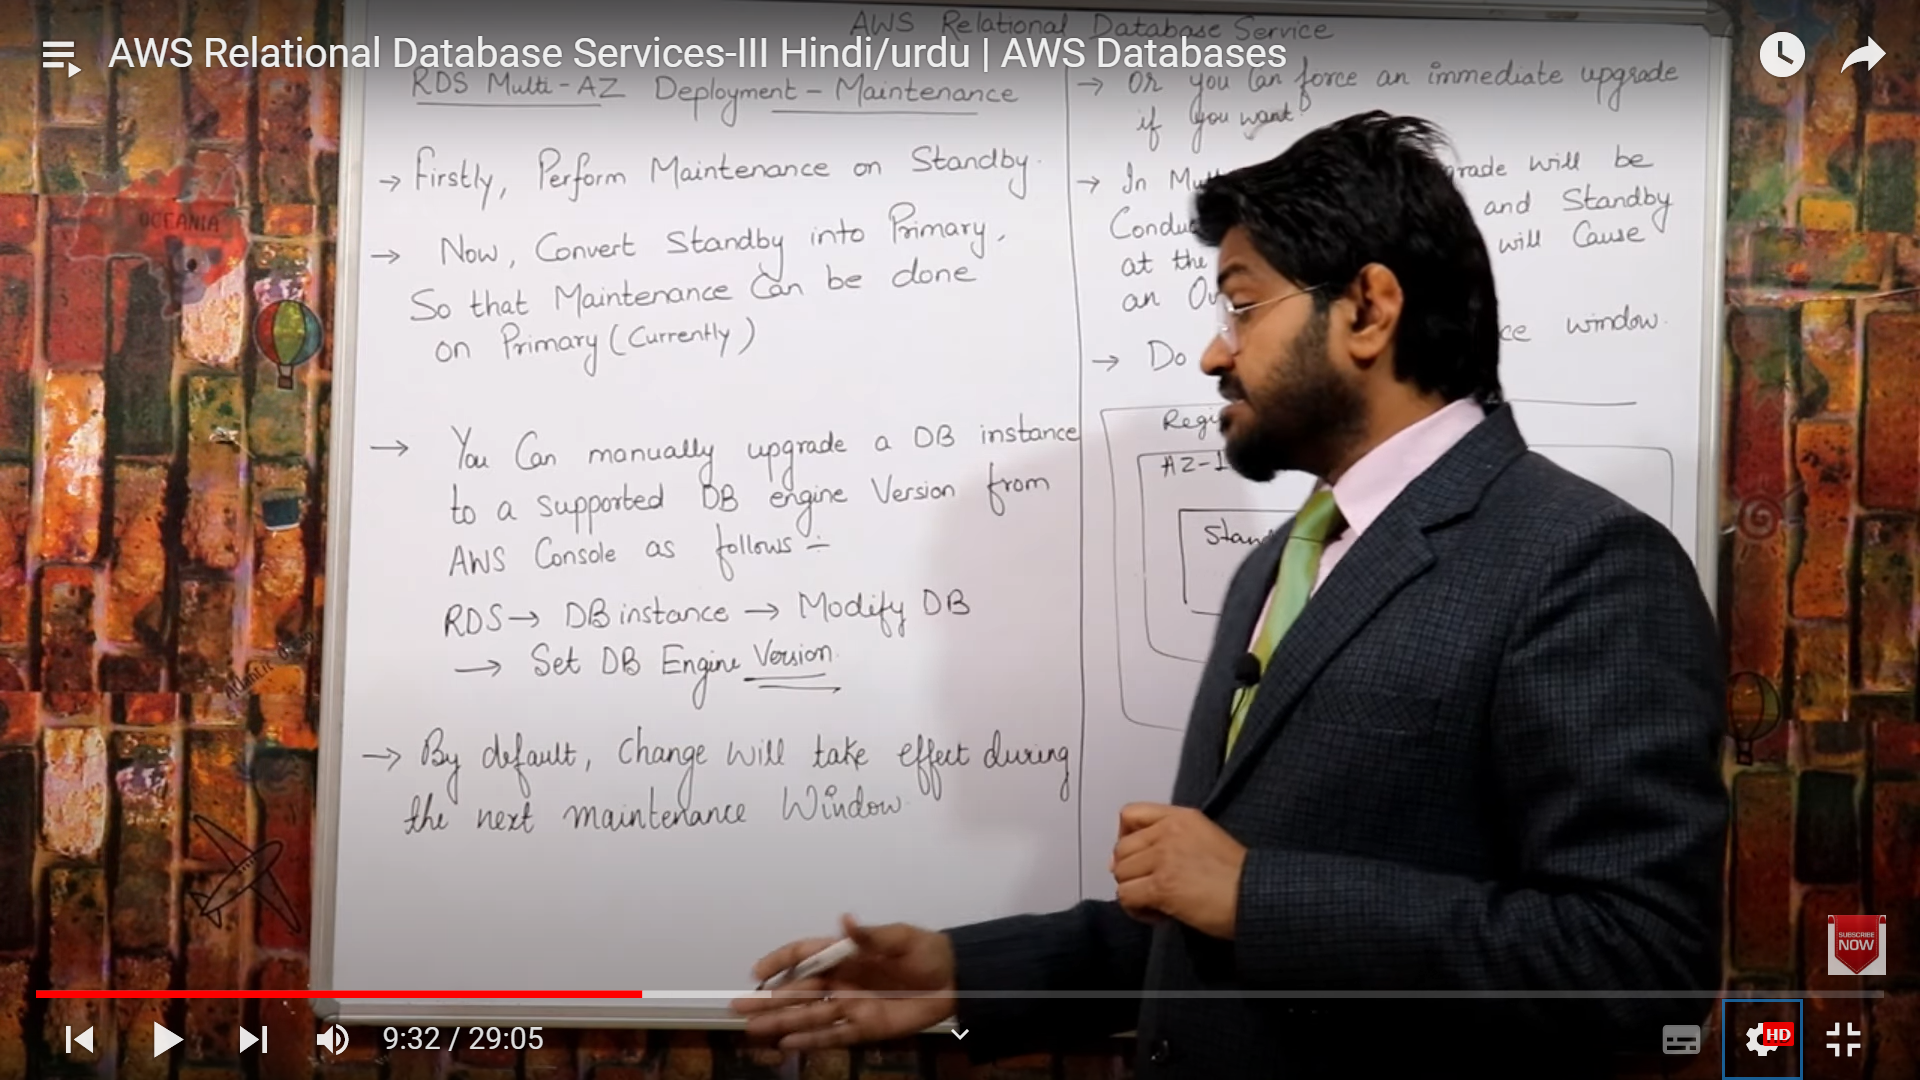 AWS Relational Database Services-III Hindi/urdu | AWS Databases
AWS Relational Database Service
RDS Multi-AZ Deployment - Maintenance
→ Firstly, Perform Maintenance on Standby.
→ Now, Convert Standby into Primary,
So that Maintenance Can be done
on Primary (Currently)
→ You Can manually upgrade a DB instance
to a supported DB engine Version from
AWS Console as follows :-
RDS → DB instance → Modify DB
→ Set DB Engine Version.
→ By default, Change will take effect during
the next maintenance Window.
→ Or you Can force an immediate upgrade
if you want
→ In will be
and Standby
at the will Cause
an
→ Do window.
AZ-1
OCEANIA
SUBSCRIBE
NOW
9:32 / 29:05
HD